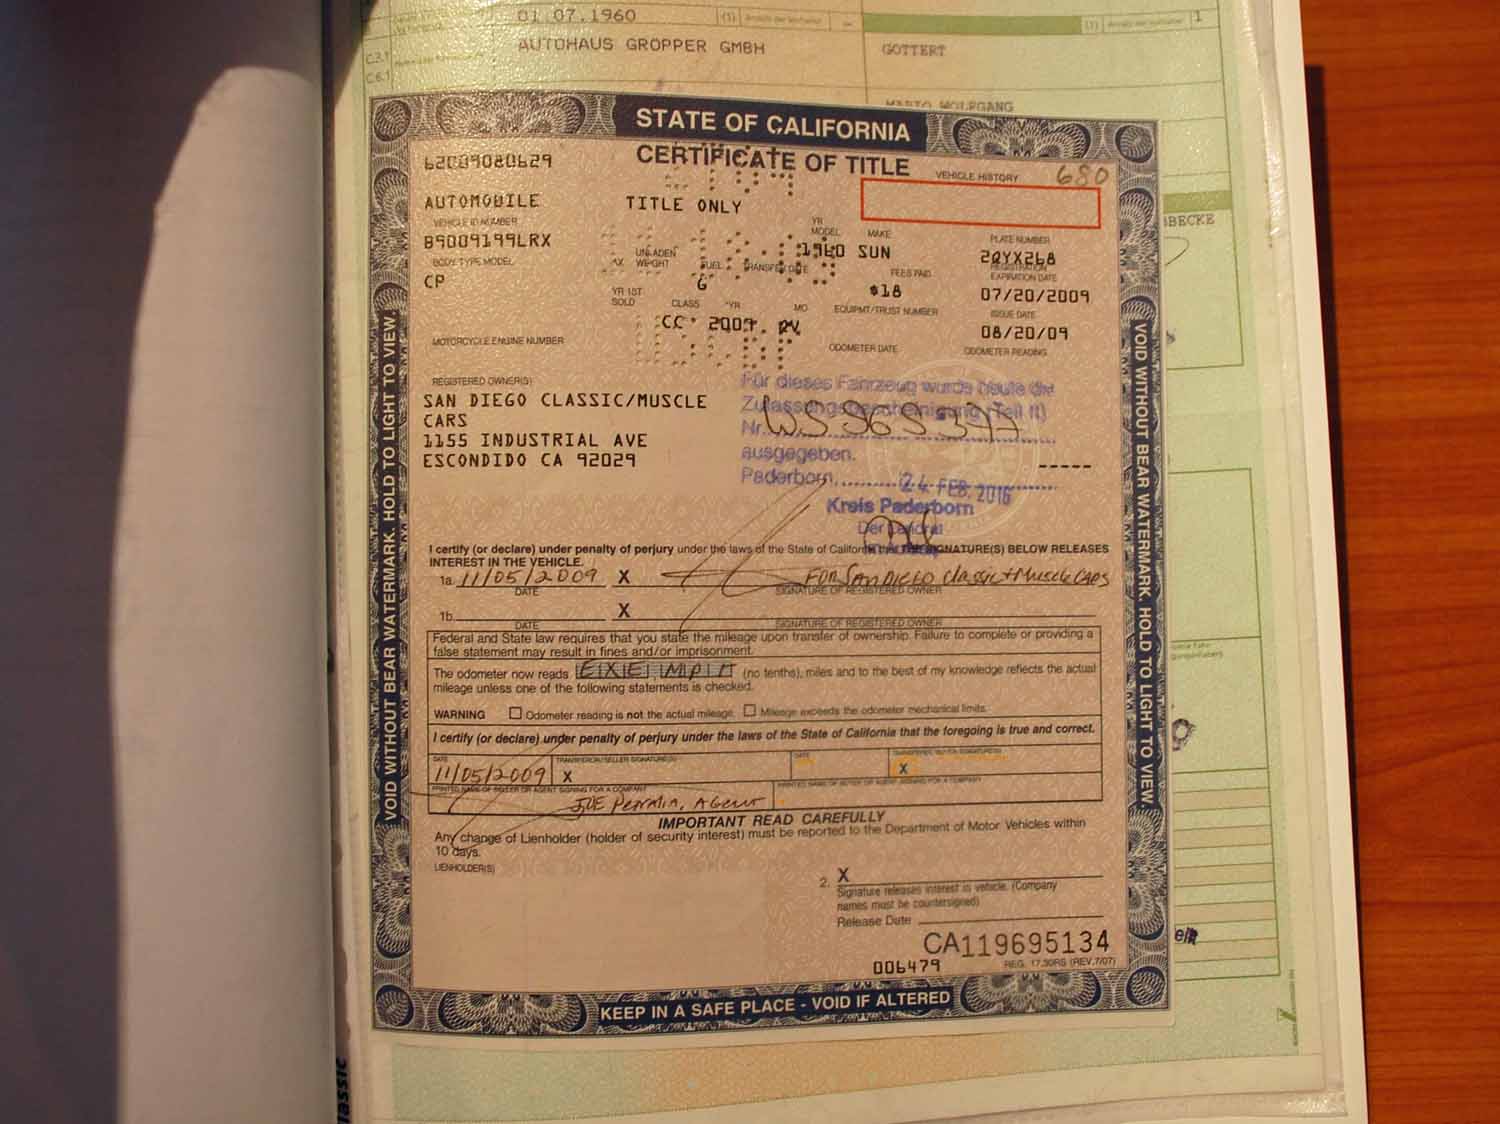 01.07.1960
1
AUTOHAUS GROPPER GMBH
GOTTERT
C.3.1
C.6.1
MARIO WOLFGANG
BBECKE
STATE OF CALIFORNIA
CERTIFICATE OF TITLE
VEHICLE HISTORY
680
AUTOMOBILE
TITLE ONLY
VEHICLE ID NUMBER
YR MODEL
MAKE
PLATE NUMBER
B9009199LRX
1960 SUN
2QYX268
BODY TYPE MODEL
AX
UNLADEN WEIGHT
FUEL
TRANSFER DATE
FEES PAID
REGISTRATION EXPIRATION DATE
CP
G
$18
07/20/2009
YR 1ST SOLD
CLASS
*YR
MO
EQUIPMT/TRUST NUMBER
ISSUE DATE
CC* 2009
08/20/09
MOTORCYCLE ENGINE NUMBER
ODOMETER DATE
ODOMETER READING
REGISTERED OWNER(S)
SAN DIEGO CLASSIC/MUSCLE
CARS
1155 INDUSTRIAL AVE
ESCONDIDO CA 92029
Für dieses Fahrzeug wurde heute die
Zulassungsbescheinigung (Teil II)
Nr.
ausgegeben.
Paderborn, 24 FEB. 2016
Kreis Paderborn
Der Landrat
I certify (or declare) under penalty of perjury under the laws of the State of California that THE SIGNATURE(S) BELOW RELEASES
INTEREST IN THE VEHICLE.
1a. 11/05/2009 X FOR SAN DIEGO Classic + Muscle CARS
DATE SIGNATURE OF REGISTERED OWNER
1b. X
DATE SIGNATURE OF REGISTERED OWNER
Federal and State law requires that you state the mileage upon transfer of ownership. Failure to complete or providing a
false statement may result in fines and/or imprisonment.
The odometer now reads EXEMPT (no tenths), miles and to the best of my knowledge reflects the actual
mileage unless one of the following statements is checked.
WARNING Odometer reading is not the actual mileage. Mileage exceeds the odometer mechanical limits.
I certify (or declare) under penalty of perjury under the laws of the State of California that the foregoing is true and correct.
DATE TRANSFEROR/SELLER SIGNATURE(S) DATE TRANSFEREE/BUYER SIGNATURE(S)
11/05/2009 X X
PRINTED NAME OF SELLER OR AGENT SIGNING FOR A COMPANY PRINTED NAME OF BUYER OR AGENT SIGNING FOR A COMPANY
JOE Agent
IMPORTANT READ CAREFULLY
Any change of Lienholder (holder of security interest) must be reported to the Department of Motor Vehicles within
10 days.
LIENHOLDER(S)
2. X
Signature releases interest in vehicle. (Company
names must be countersigned)
Release Date
CA119695134
006479
REG. 17.30RS (REV.7/07)
KEEP IN A SAFE PLACE - VOID IF ALTERED
VOID WITHOUT BEAR WATERMARK. HOLD TO LIGHT TO VIEW.
VOID WITHOUT BEAR WATERMARK. HOLD TO LIGHT TO VIEW.